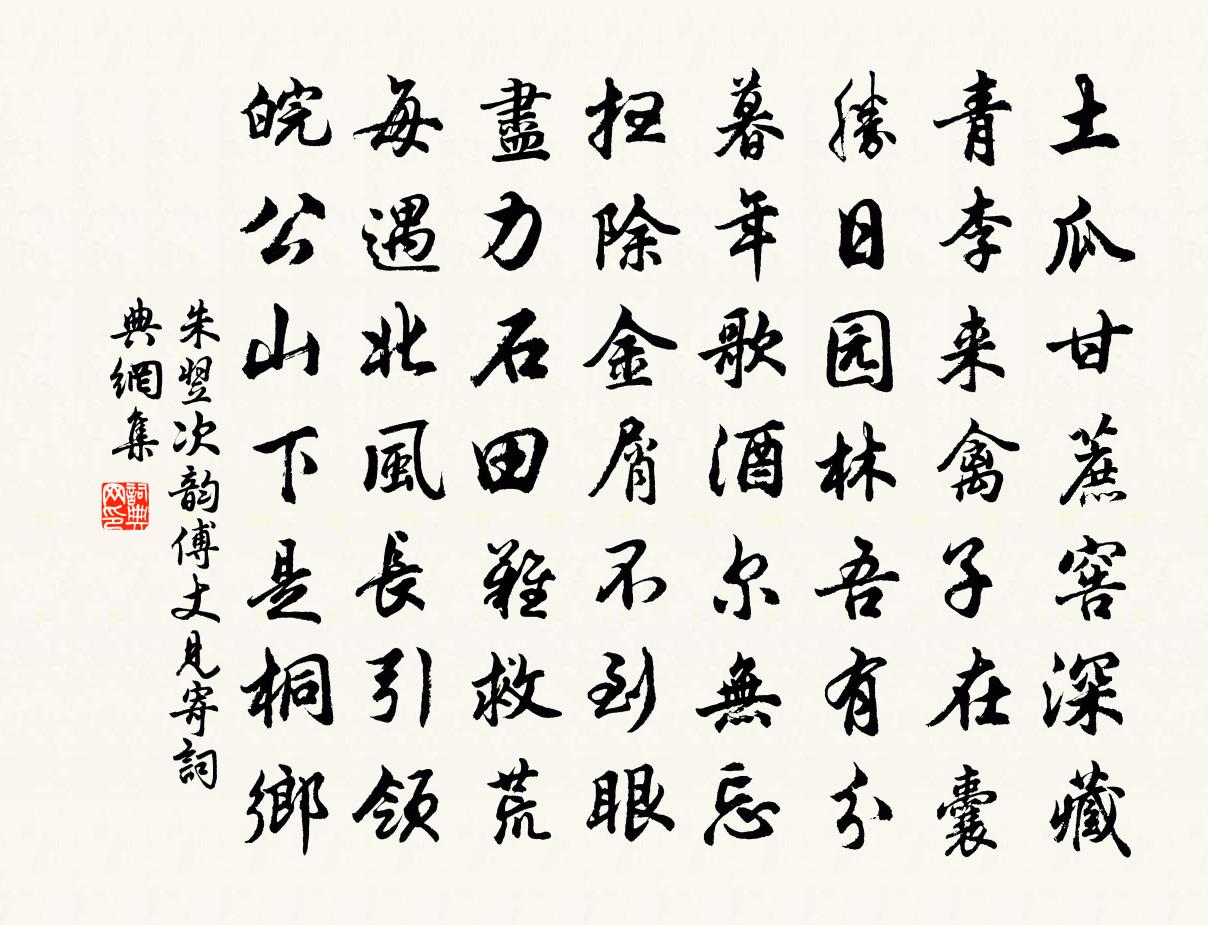 土瓜甘蔗窖深藏
青李来禽子在囊
勝日园林吾有分
暮年歌酒尔無忘
扫除金屑不到眼
盡力石田難救荒
每遇北風長引領
皖公山下是桐鄉
朱翌次韵傅丈見寄詞
典網集
詞典
网印